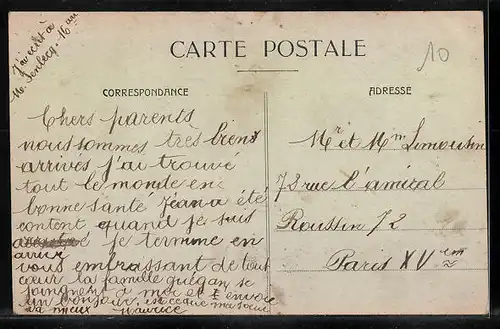 J'ai écrit à
M. 16 mai
CARTE POSTALE
10
CORRESPONDANCE
ADRESSE
Chers parents
nous sommes très bient
arrivés j'ai trouvé
tout le monde en
bonne santé Jean a été
content quand je suis
je termme en
arrivé
vous embrassant de tout
cœur la famille Guégan se
joingnent à moi et t envoie
un bonjour. est ce que ma sœur
va mieux Maurice
Mr et Mm Limousin
78 rue l'amiral
Roussin 72
Paris XV em